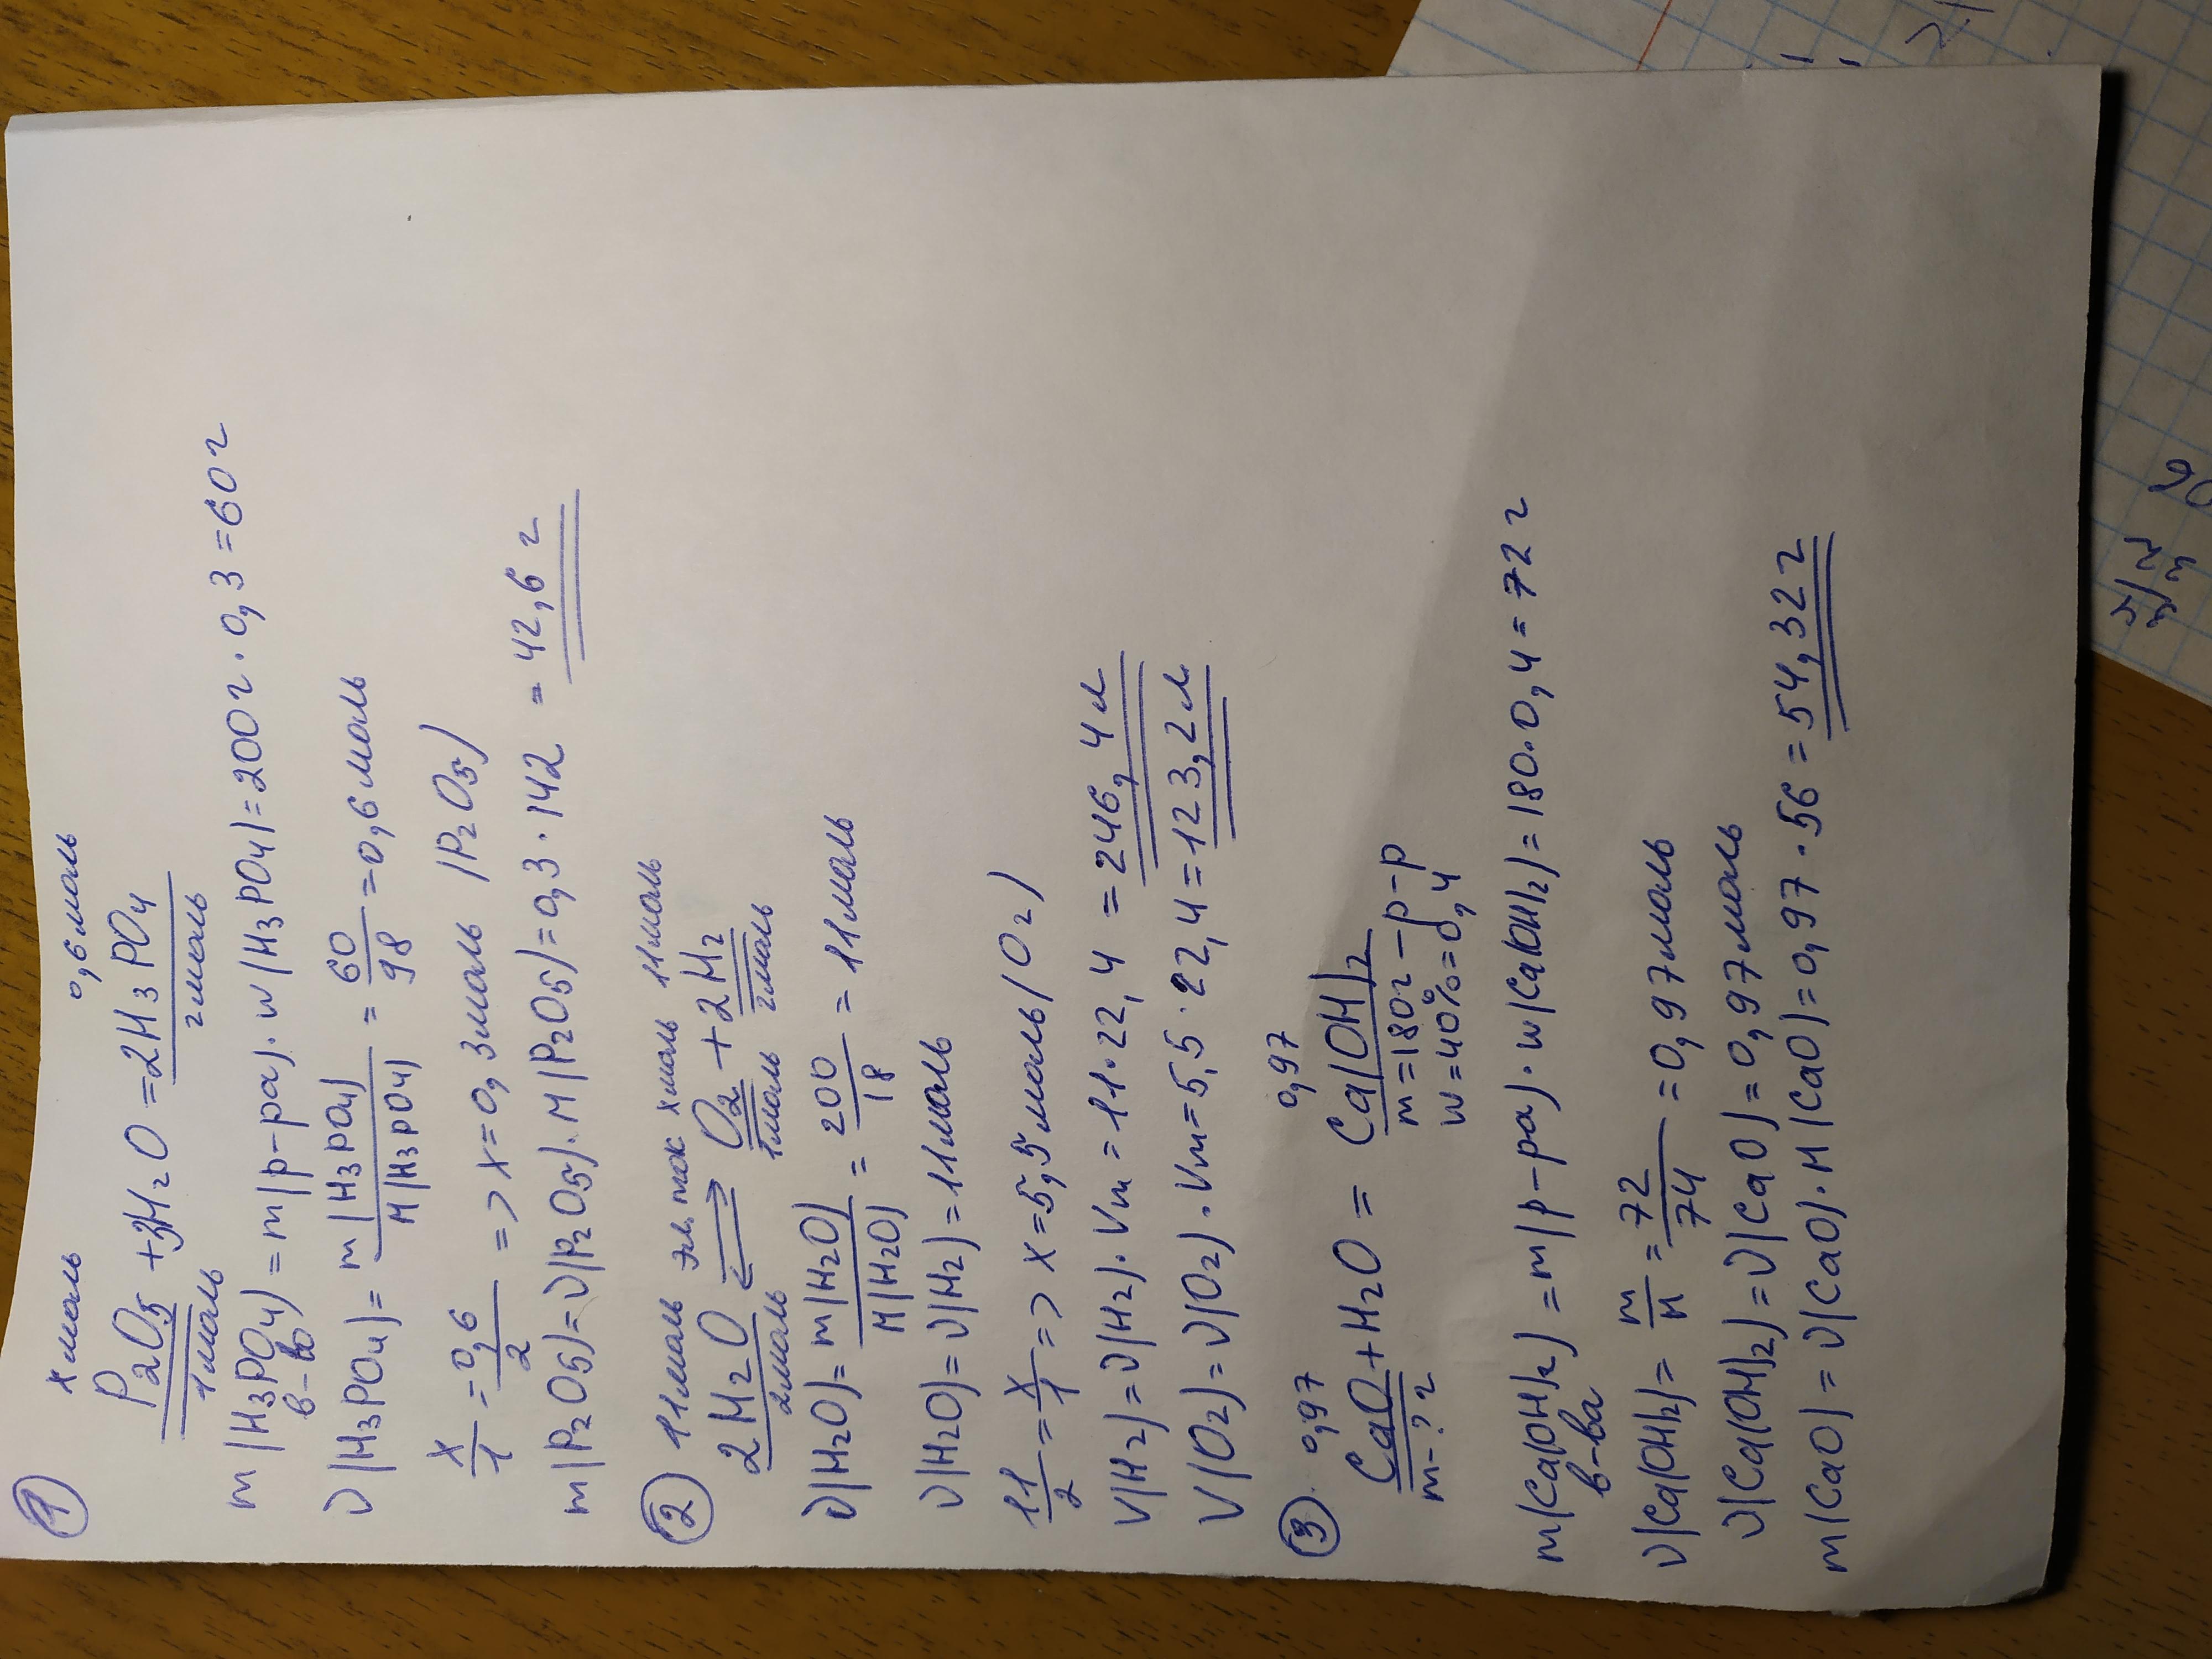 1
x моль 0,6 моль
P2O5 + 3H2O = 2H3PO4
1 моль 2 моль
m(H3PO4) = m(р-ра) · w(H3PO4) = 200 г · 0,3 = 60 г
в-во
ν(H3PO4) = m(H3PO4)/M(H3PO4) = 60/98 = 0,6 моль
x/1 = 0,6/2 => x = 0,3 моль (P2O5)
m(P2O5) = ν(P2O5) · M(P2O5) = 0,3 · 142 = 42,6 г
2
11 моль эл. ток x моль 11 моль
2H2O ⇄ O2 + 2H2
2 моль 1 моль 2 моль
ν(H2O) = m(H2O)/M(H2O) = 200/18 = 11 моль
ν(H2O) = ν(H2) = 11 моль
11/2 = x/1 => x = 5,5 моль (O2)
V(H2) = ν(H2) · Vm = 11 · 22,4 = 246,4 л
V(O2) = ν(O2) · Vm = 5,5 · 22,4 = 123,2 л
3
0,97 0,97
CaO + H2O = Ca(OH)2
m-? г m = 180 г – р-р
w = 40% = 0,4
m(Ca(OH)2) = m(р-ра) · w(Ca(OH)2) = 180 · 0,4 = 72 г
в-ва
ν(Ca(OH)2) = m/M = 72/74 = 0,97 моль
ν(Ca(OH)2) = ν(CaO) = 0,97 моль
m(CaO) = ν(CaO) · M(CaO) = 0,97 · 56 = 54,32 г